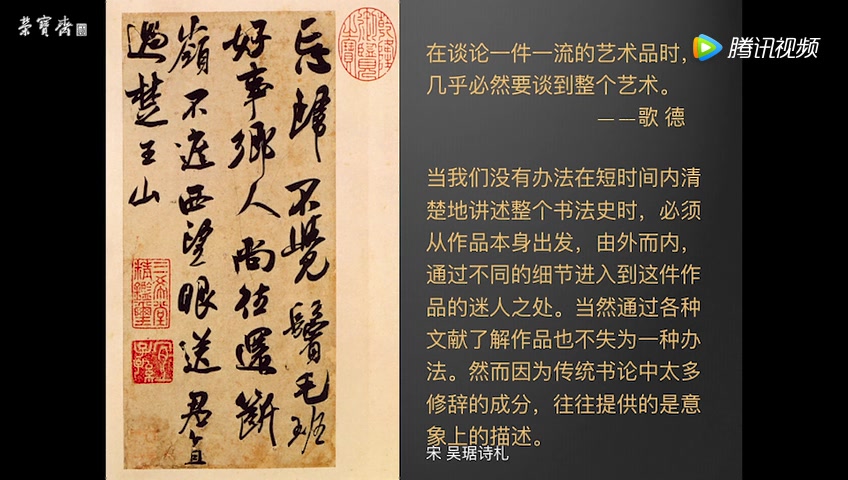 榮寶齋
忘歸不覺鬢毛班
好事鄉人尚往還斷
嶺不遮西望眼送君直
過楚王山
乾隆御覽之寶
三希堂精鑑璽
宜子孫
腾讯视频
在谈论一件一流的艺术品时，
几乎必然要谈到整个艺术。
——歌 德
当我们没有办法在短时间内清
楚地讲述整个书法史时，必须
从作品本身出发，由外而内，
通过不同的细节进入到这件作
品的迷人之处。当然通过各种
文献了解作品也不失为一种办
法。然而因为传统书论中太多
修辞的成分，往往提供的是意
象上的描述。
宋 吴琚诗札